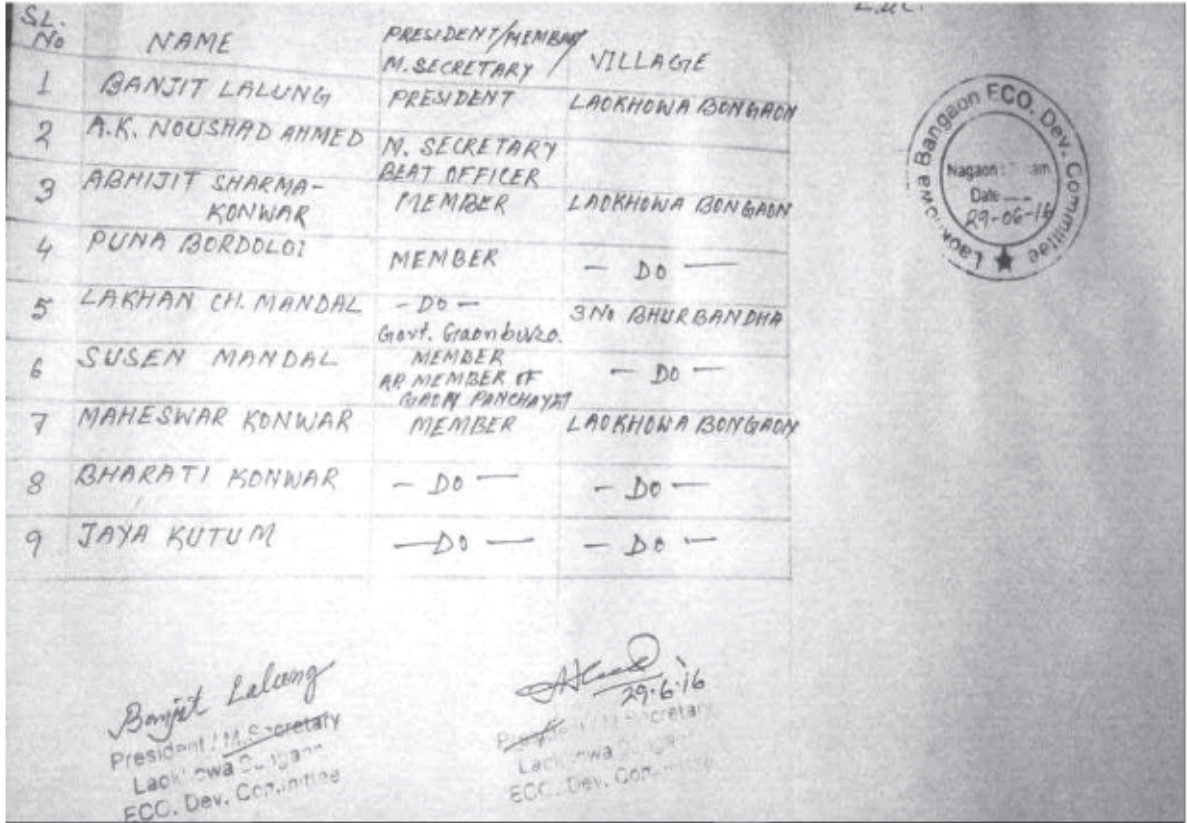 SL. No NAME PRESIDENT/MEMBER/ M. SECRETARY VILLAGE
1 BANJIT LALUNG PRESIDENT LAOKHOWA BONGAON
2 A.K. NOUSHAD AHMED M. SECRETARY BEAT OFFICER
3 ABHIJIT SHARMA- KONWAR MEMBER LAOKHOWA BONGAON
4 PUNA BORDOLOI MEMBER - DO -
5 LAKHAN CH. MANDAL - DO - Govt. Gaonbura. 3 No BHURBANDHA
6 SUSEN MANDAL MEMBER AP MEMBER OF GAON PANCHAYAT - DO -
7 MAHESWAR KONWAR MEMBER LAOKHOWA BONGAON
8 BHARATI KONWAR - DO - - DO -
9 JAYA KUTUM - DO - - DO -
Bangaon ECO. Dev. Committee
Nagaon
Date
29-06-16
Banjit Lalung
President / M. Secretary
ECO. Dev. Committee
29.6.16
President / M. Secretary
ECO. Dev.